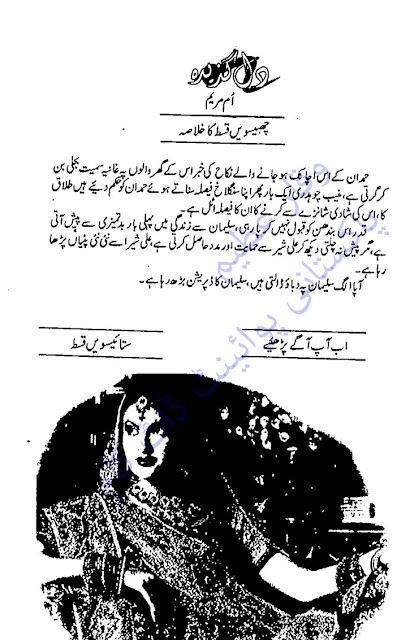 دل گزیدہ
اُم مریم
چھبیسویں قسط کا خلاصہ
حمدان کے اس اچانک ہو جانے والے نکاح کی خبر اس کے گھر والوں پہ غانیہ سمیت بجلی بن
کر گرتی ہے، منیب چوہدری ایک بار پھر اپنا سنگلاخ فیصلہ سناتے ہوئے حمدان کو حکم دیتے ہیں طلاق
کا، اس کی شادی شانزے سے کرنے کا ان کا فیصلہ اٹل ہے۔
قدر اس بندھن کو قبول نہیں کر پا رہی، سلیمان سے زندگی میں پہلی بار بدتمیزی سے پیش آتی
ہے، مگر پیش نہ چلتی دیکھ کر علی شیر سے حمایت اور مدد حاصل کرتی ہے، علی شیر اسے نئی نئی پٹیاں پڑھا
رہا ہے۔
آپا الگ سلیمان پہ دباؤ ڈالتی ہیں، سلیمان کا ڈپریشن بڑھ رہا ہے۔
اب آپ آگے پڑھیئے
ستائیسویں قسط
پاکستانی پوائنٹ